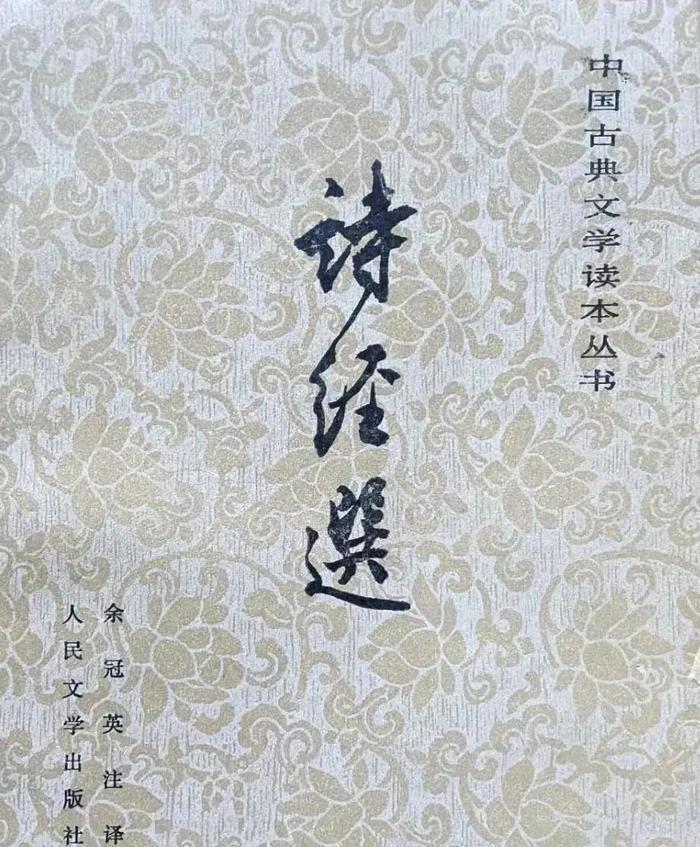 中国古典文学读本丛书
詩經選
余冠英注译
人民文学出版社